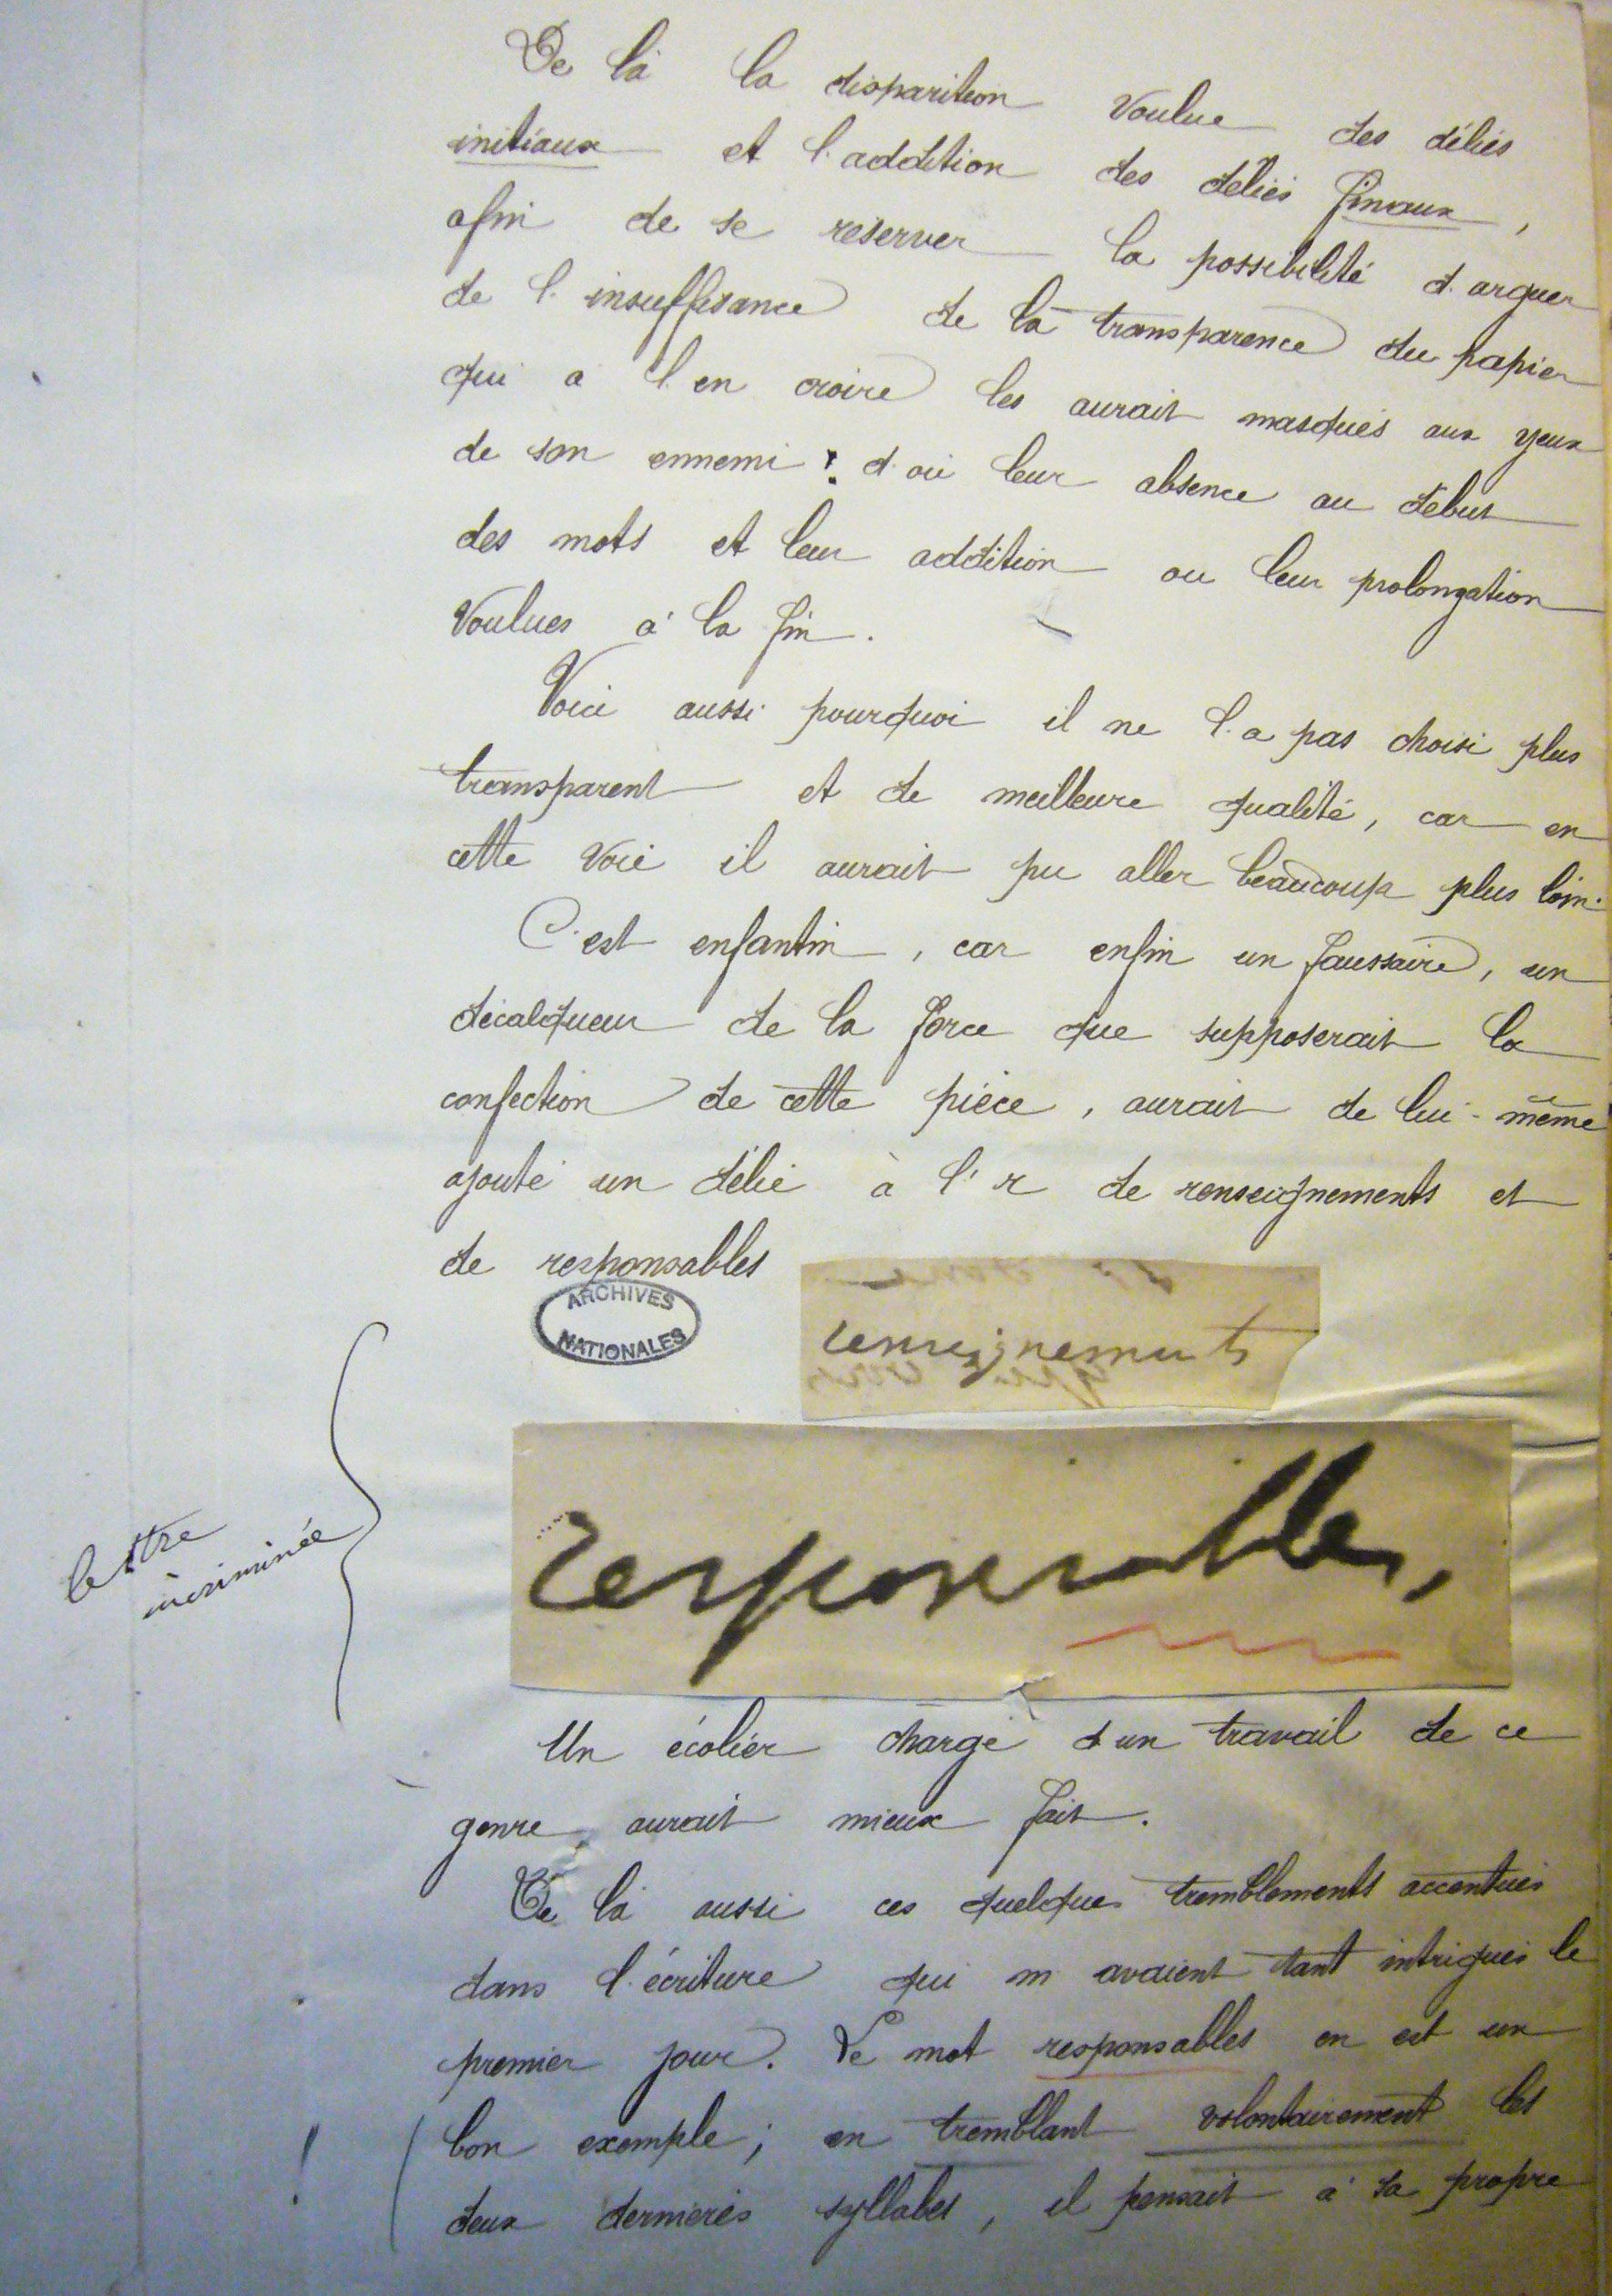 De là la disparition voulue des déliés
initiaux et l'addition des déliés finaux,
afin de se réserver la possibilité d'arguer
de l'insuffisance de la transparence du papier
qui a l'en croire les aurait masqués aux yeux
de son ennemi : d'où leur absence au début
des mots et leur addition ou leur prolongation
voulues à la fin.
Voici aussi pourquoi il ne l'a pas choisi plus
transparent et de meilleure qualité, car en
cette voie il aurait pu aller beaucoup plus loin.
C'est enfantin, car enfin un faussaire, un
décalqueur de la force que supposerait la
confection de cette pièce, aurait de lui-même
ajouté un délié à l'r de renseignements et
de responsables
ARCHIVES
NATIONALES
renseignements
lettre
incriminée
responsables,
Un écolier chargé d'un travail de ce
genre aurait mieux fait.
De là aussi ces quelques tremblements accentués
dans l'écriture qui m'avaient tant intrigués le
premier jour. Le mot responsables en est un
! bon exemple ; en tremblant volontairement les
deux dernières syllabes, il pensait à sa propre